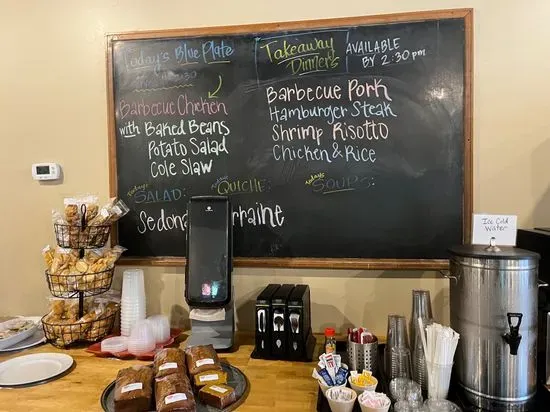 Today's Blue Plate
Barbecue Chicken
with Baked Beans
Potato Salad
Cole Slaw
Takeaway
Dinners
AVAILABLE
BY 2:30 pm
Barbecue Pork
Hamburger Steak
Shrimp Risotto
Chicken & Rice
Today's
SALAD:
Sedona
Today's
QUICHE:
Lorraine
Today's
SOUPS:
Ice Cold
Water